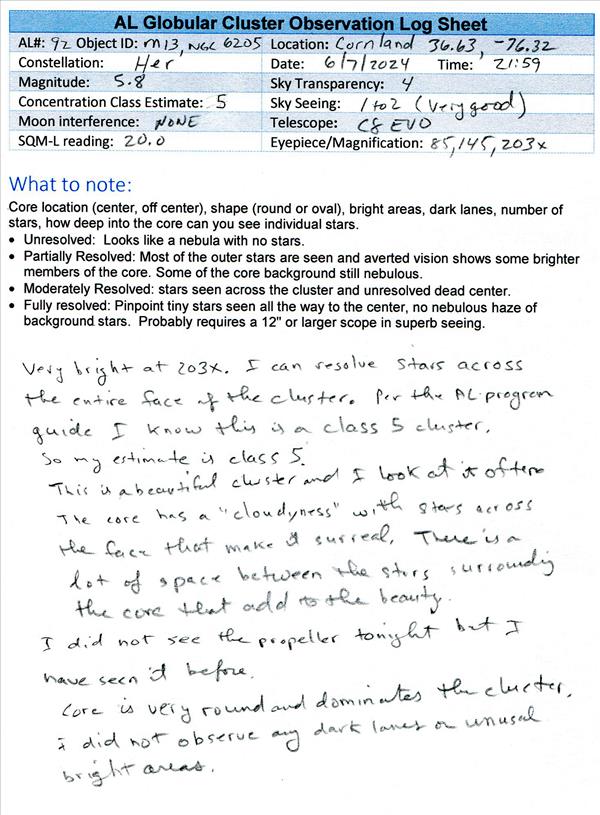 AL Globular Cluster Observation Log Sheet
AL#: 92 Object ID: M13, NGC 6205 Location: Cornland 36.63, -76.32
Constellation: Her Date: 6/7/2024 Time: 21:59
Magnitude: 5.8 Sky Transparency: 4
Concentration Class Estimate: 5 Sky Seeing: 1 to 2 (Very good)
Moon interference: NONE Telescope: C8 EVO
SQM-L reading: 20.0 Eyepiece/Magnification: 85, 145, 203x
What to note:
Core location (center, off center), shape (round or oval), bright areas, dark lanes, number of
stars, how deep into the core can you see individual stars.
• Unresolved: Looks like a nebula with no stars.
• Partially Resolved: Most of the outer stars are seen and averted vision shows some brighter
members of the core. Some of the core background still nebulous.
• Moderately Resolved: stars seen across the cluster and unresolved dead center.
• Fully resolved: Pinpoint tiny stars seen all the way to the center, no nebulous haze of
background stars. Probably requires a 12" or larger scope in superb seeing.
Very bright at 203x. I can resolve stars across
the entire face of the cluster. Per the AL program
guide I know this is a class 5 cluster.
So my estimate is class 5.
This is a beautiful cluster and I look at it often
The core has a "cloudyness" with stars across
the face that make it surreal. There is a
lot of space between the stars surrounding
the core that add to the beauty.
I did not see the propeller tonight but I
have seen it before.
Core is very round and dominates the cluster.
i did not observe any dark lanes or unusual
bright areas.